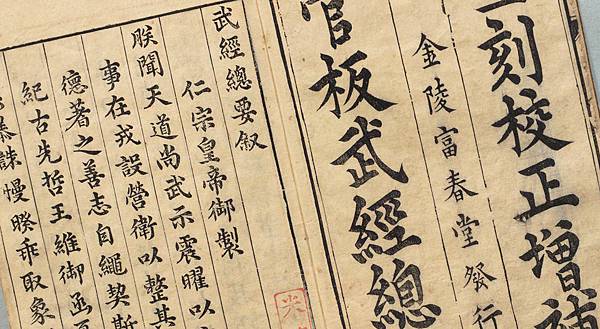 刻校正增補
金陵富春堂發行
官板武經總
武經總要叙
仁宗皇帝御製
朕聞天道尚武示震曜以
事在戎設營衛以整其
德著之善志自繩契斯
紀古先哲王維御函
暴誅慢睽乖取象